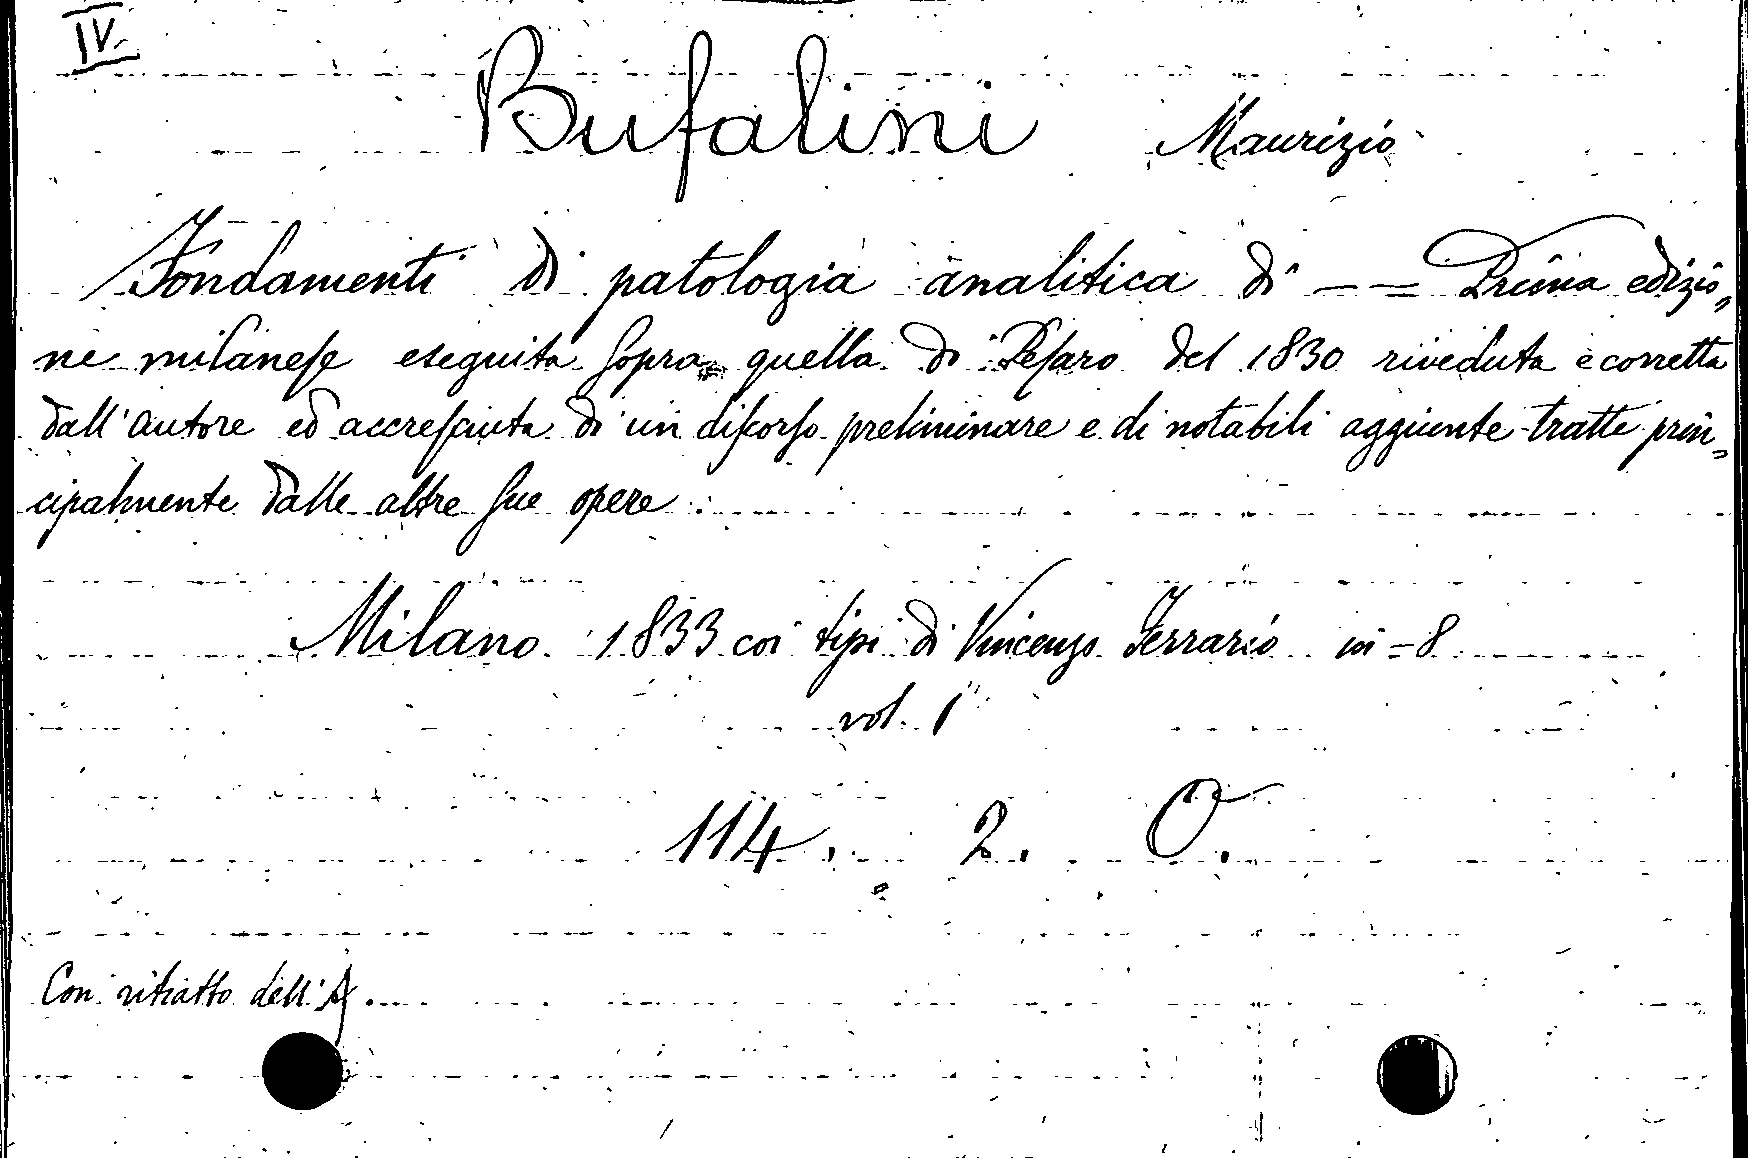 IV.
Bufalini Maurizio
Fondamenti di patologia analitica di — = Prima edizio„
ne milanese eseguita sopra quella di Pesaro del 1830 riveduta e corretta
dall'autore ed accresciuta di un discorso preliminare e di notabili aggiunte tratte prin„
cipalmente dalle altre sue opere
Milano 1833 coi tipi di Vincenzo Ferrario in=8
vol. 1
114. 2. O.
Con ritratto dell'A.